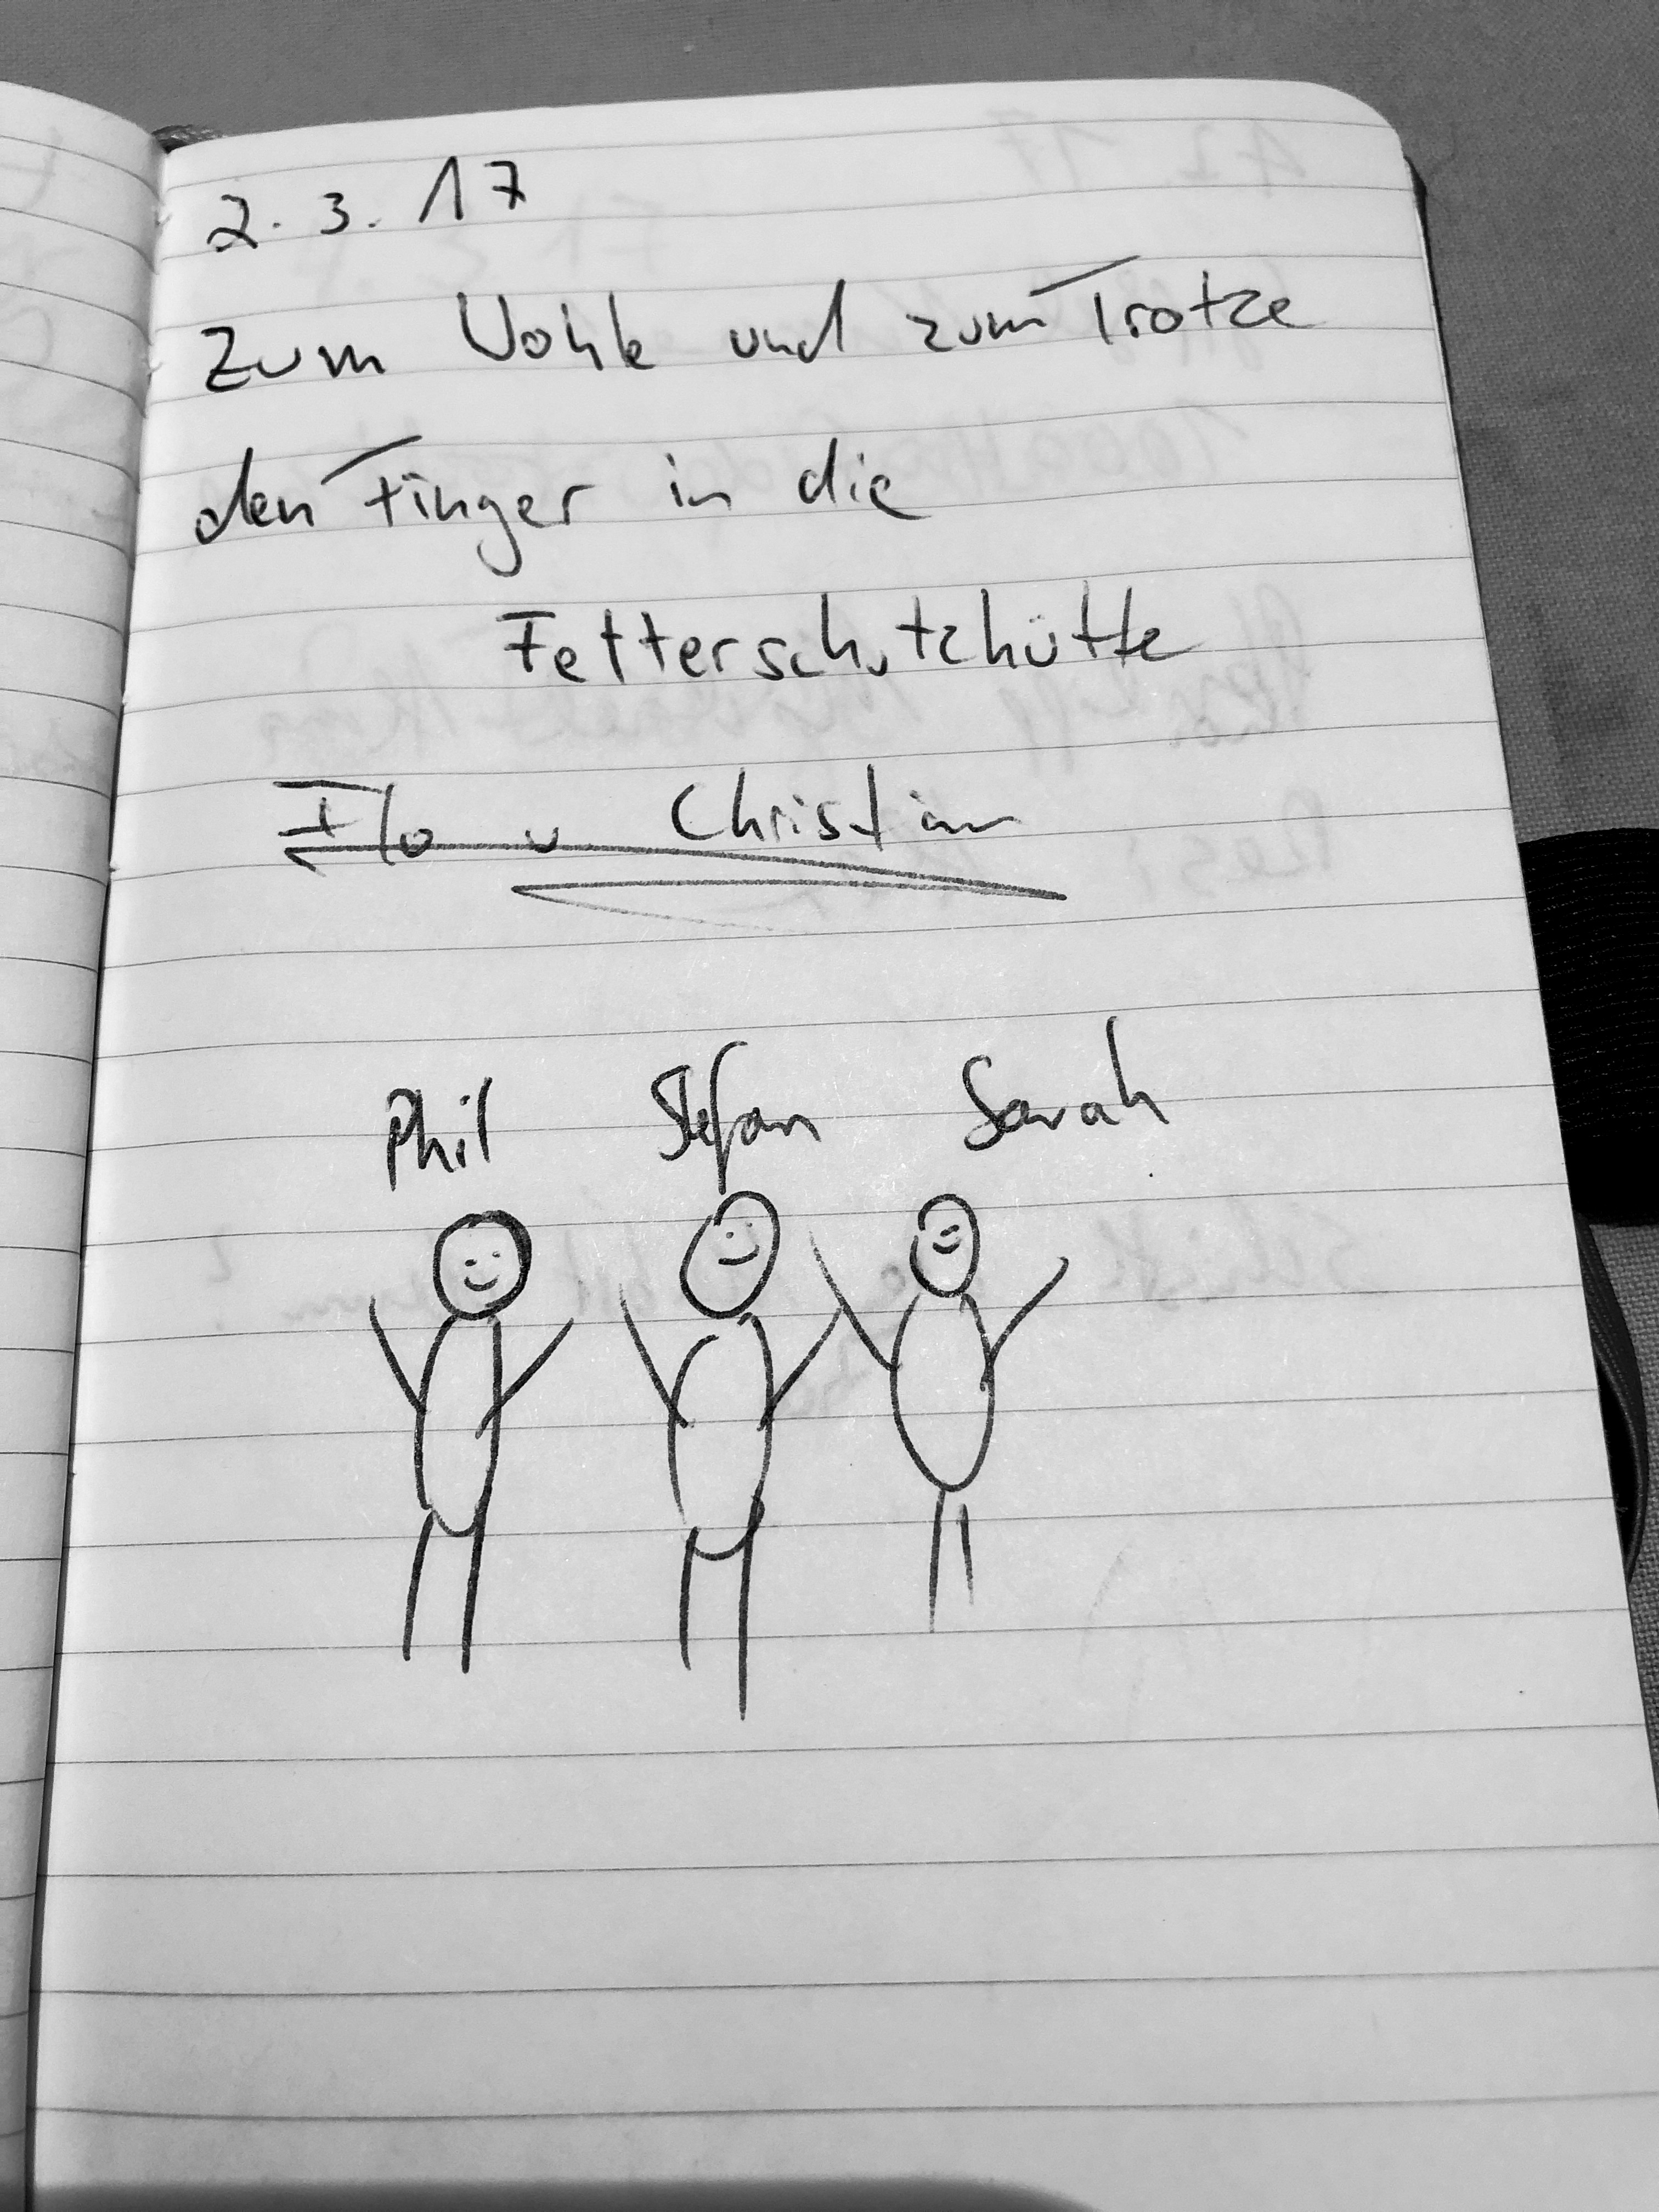 2. 3. 17
Zum Wohle und zum Trotze
den Finger in die
Fetterschutzhütte
Flo u Christian
Phil Stefan Sarah